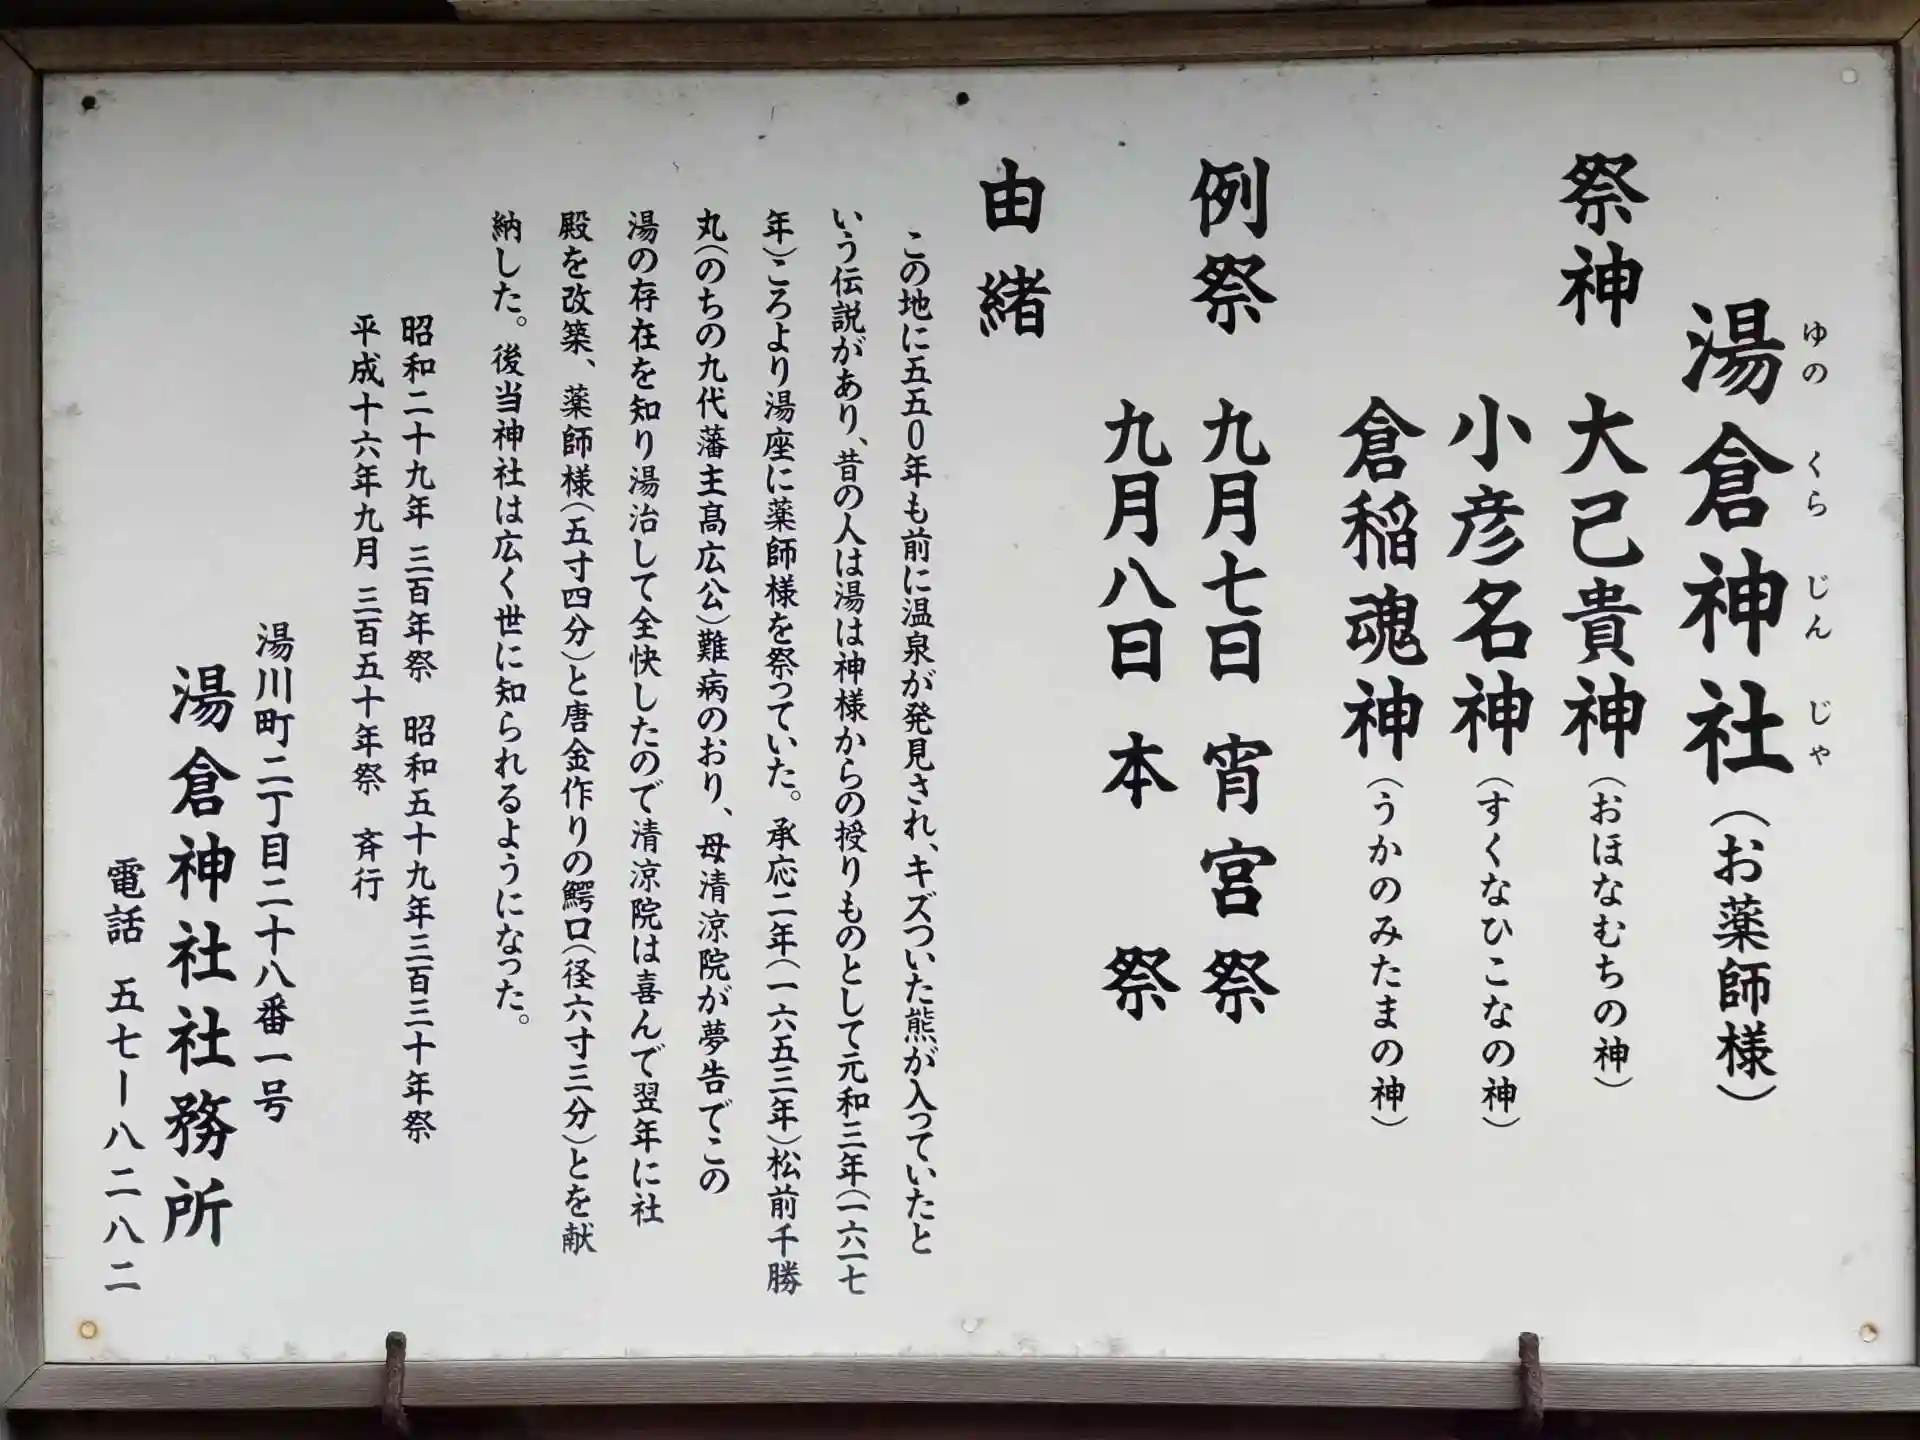 湯倉神社(お薬師様)
ゆの くら じん じゃ
祭神 大己貴神(おほなむちの神)
小彦名神(すくなひこなの神)
倉稲魂神(うかのみたまの神)
例祭 九月七日 宵宮祭
九月八日 本祭
由緒
この地に五五0年も前に温泉が発見され、キズついた熊が入っていたと
いう伝説があり、昔の人は湯は神様からの授りものとして元和三年(一六一七
年)ころより湯座に薬師様を祭っていた。承応二年(一六五三年)松前千勝
丸(のちの九代藩主高広公)難病のおり、母清涼院が夢告でこの
湯の存在を知り湯治して全快したので清涼院は喜んで翌年に社
殿を改築、薬師様(五寸四分)と唐金作りの鰐口(径六寸三分)とを献
納した。後当神社は広く世に知られるようになった。
昭和二十九年 三百年祭 昭和五十九年三百三十年祭
平成十六年九月 三百五十年祭 斉行
湯川町二丁目二十八番一号
湯倉神社社務所
電話 五七ー八二八二